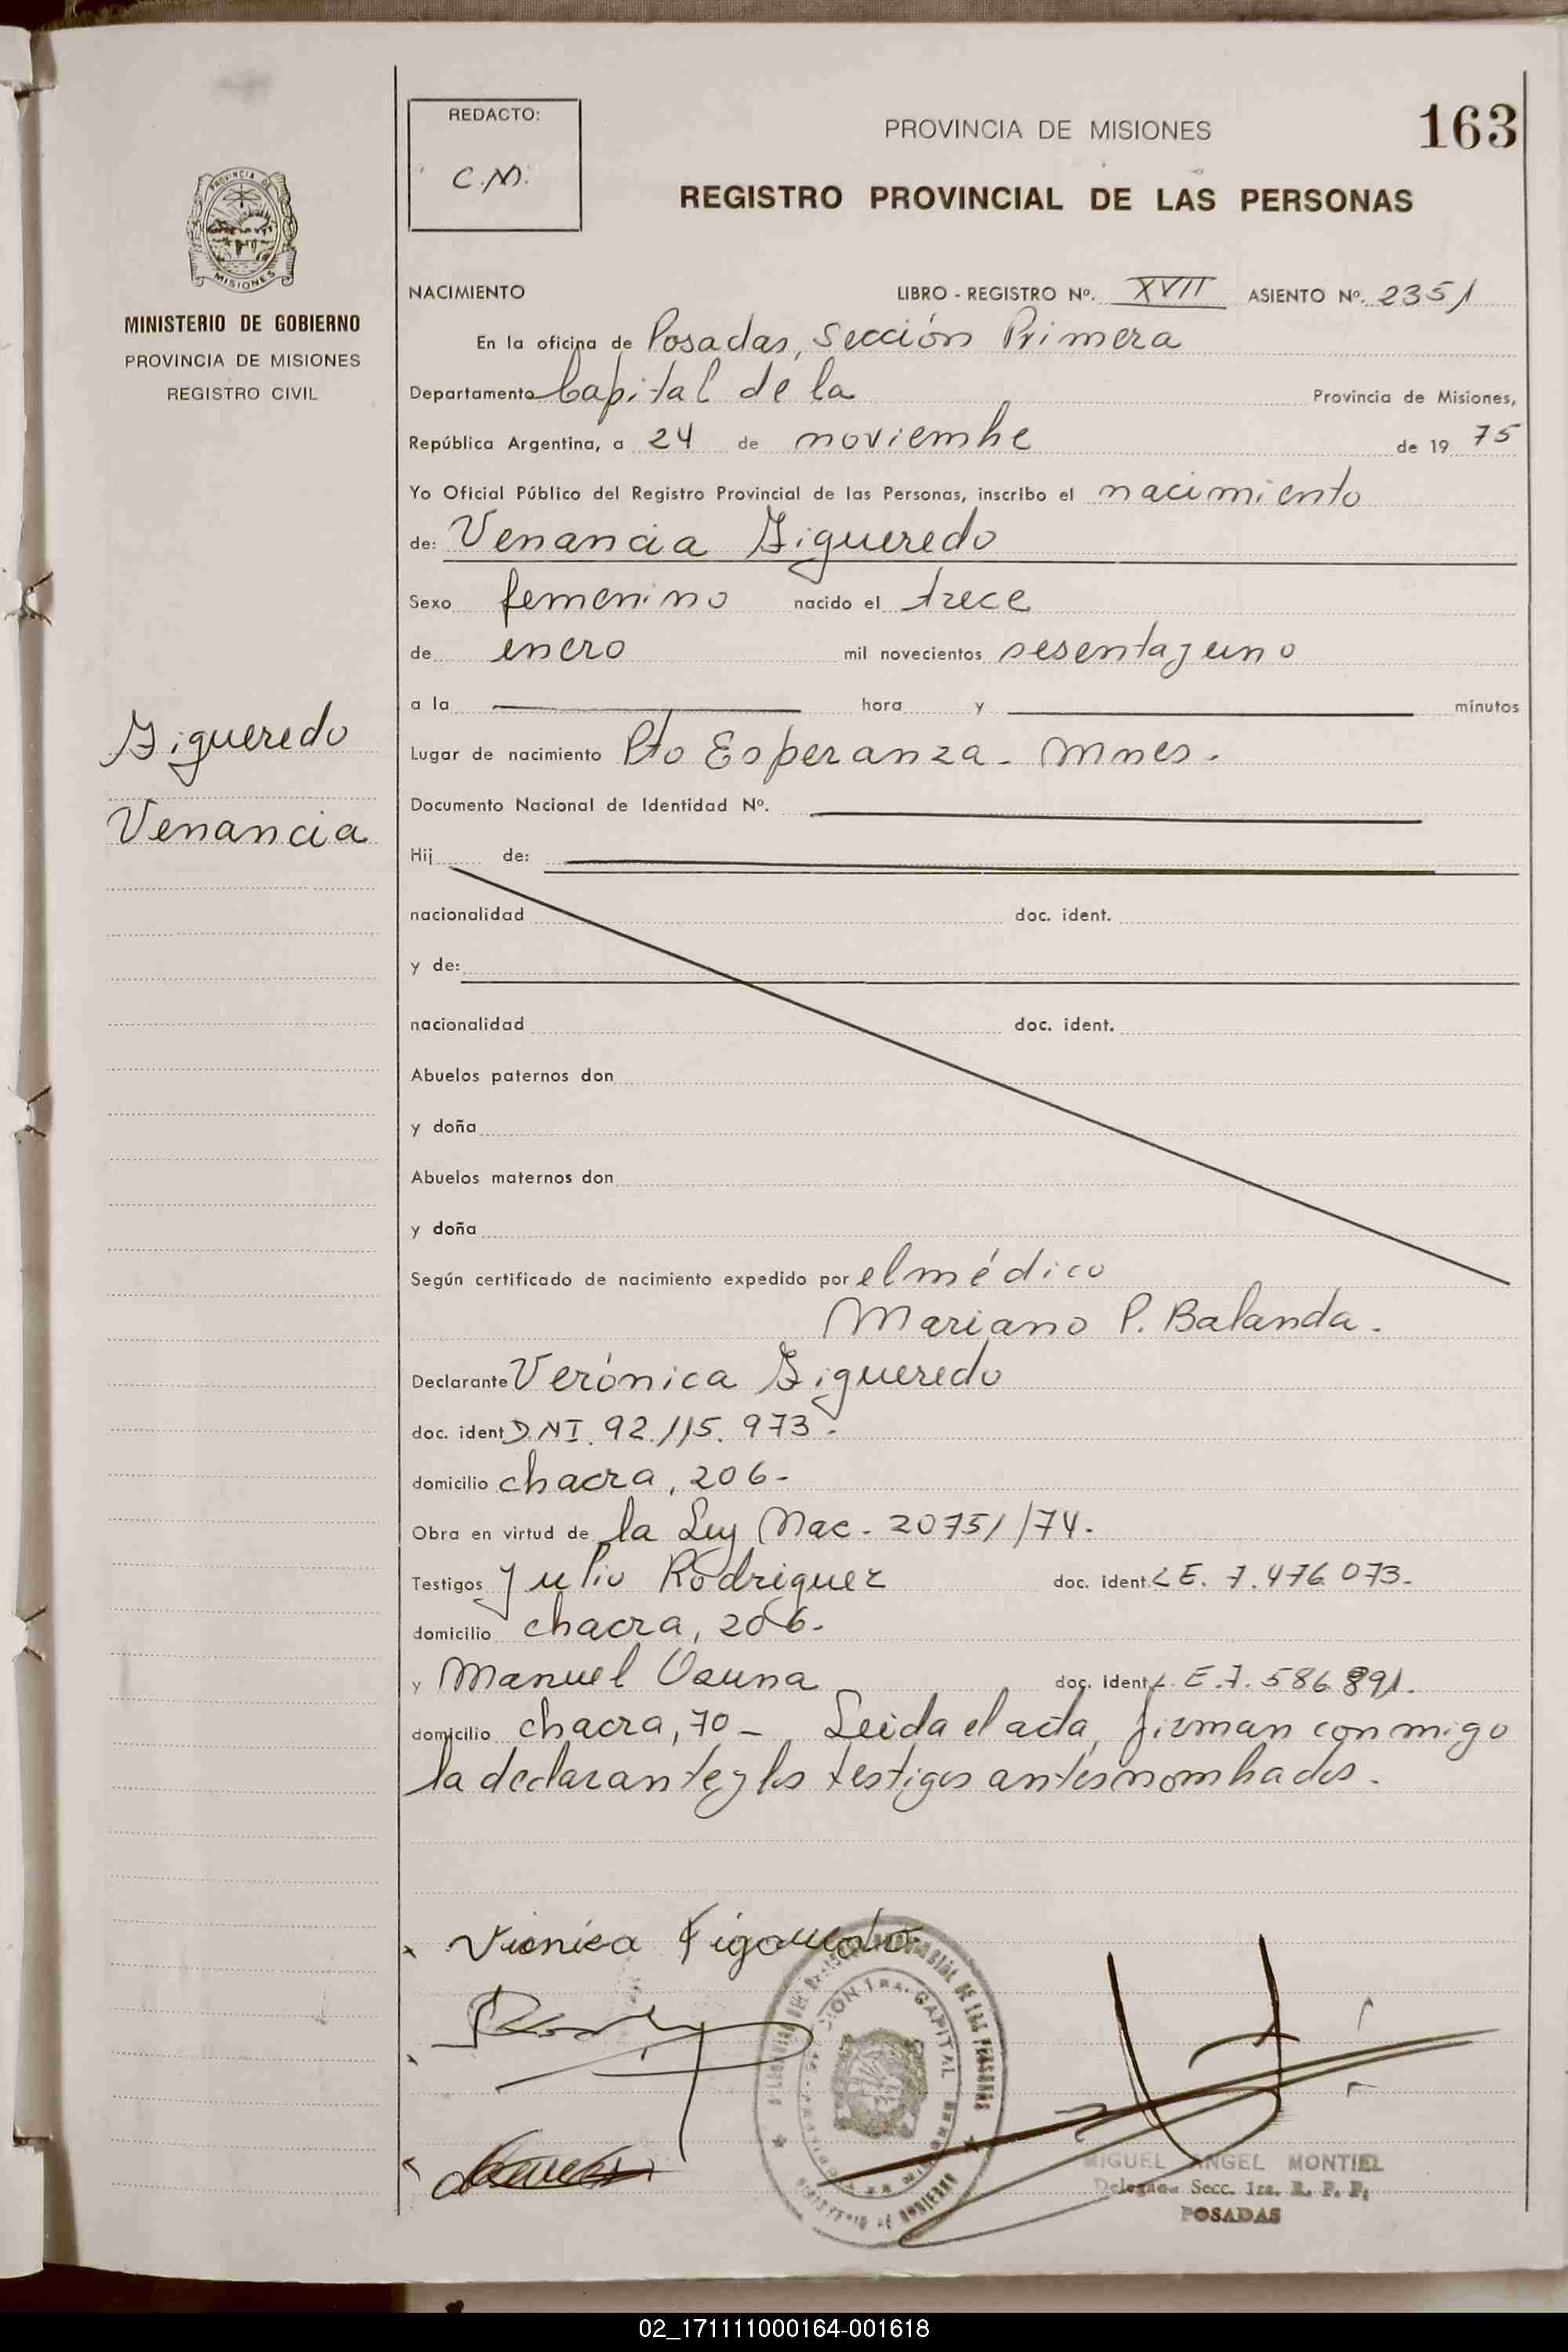 REDACTO:
C.M.
PROVINCIA DE MISIONES
163
REGISTRO PROVINCIAL DE LAS PERSONAS
PROVINCIA DE
MISIONES
MINISTERIO DE GOBIERNO
PROVINCIA DE MISIONES
REGISTRO CIVIL
NACIMIENTO LIBRO - REGISTRO Nº. XVII ASIENTO Nº. 2351
En la oficina de Posadas, Sección Primera
Departamento Capital de la Provincia de Misiones,
República Argentina, a 24 de noviembre de 19 75
Yo Oficial Público del Registro Provincial de las Personas, inscribo el nacimiento
de: Venancia Figueredo
Sexo femenino nacido el trece
de enero mil novecientos sesenta y uno
a la hora y minutos
Figueredo
Venancia
Lugar de nacimiento Pto Esperanza - Mnes.
Documento Nacional de Identidad Nº.
Hij de:
nacionalidad doc. ident.
y de:
nacionalidad doc. ident.
Abuelos paternos don
y doña
Abuelos maternos don
y doña
Según certificado de nacimiento expedido por el médico
Mariano P. Balanda.
Declarante Verónica Figueredo
doc. ident D.N.I. 92.115.973.
domicilio chacra, 206-
Obra en virtud de la Ley Nac. 20751/74.
Testigos Julio Rodriguez doc. ident. L E. 7.476.073.
domicilio chacra, 206.
y Manuel Osuna doc. ident L. E. 7. 586.891.
domicilio chacra, 70 - Leida el acta, firman conmigo
la declarante y los testigos antes nombrados.
MIGUEL ANGEL MONTIEL
Delegado Secc. 1ra. R. P. P.
POSADAS
02_171111000164-001618